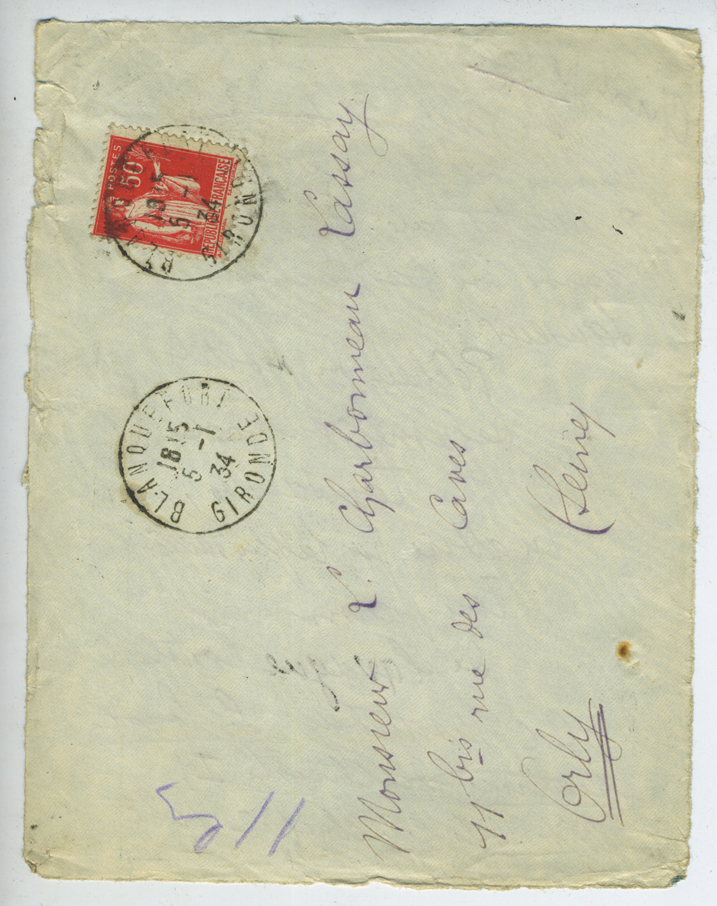 POSTES
50
REPUBLIQUE FRANCAISE
5 -1
34
GIRONDE
BLANQUEFORT
18 15
5 -1
34
GIRONDE
Monsieur L. Charbonneau Lassay.
11 bis rue des Caves
Orly (Seine)